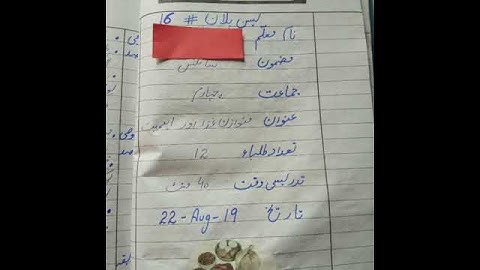 لیسن پلان # 16
نام معلم
مضمون سائنس
جماعت چہارم
عنوان متوازن غذا اور اہمیت
تعداد طلباء 12
تدریسی وقت 40 منٹ
تاریخ 22-Aug-19